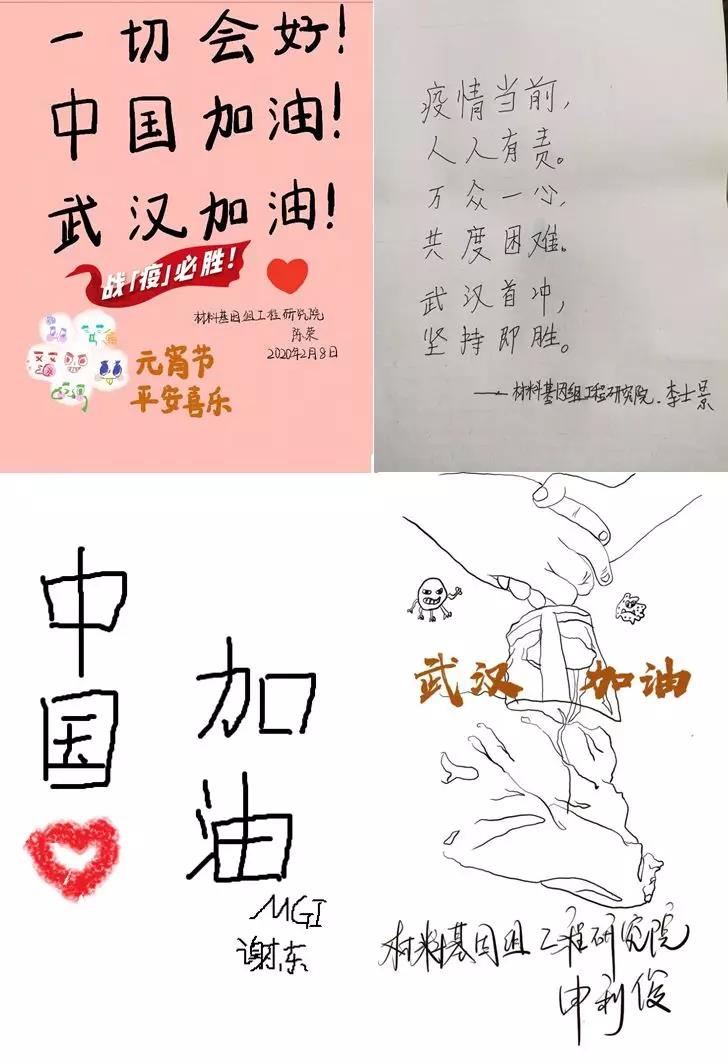 一切会好!
中国加油!
武汉加油!
战「疫」必胜!
材料基因组工程研究院
陈荣
2020年2月8日
元宵节
平安喜乐
疫情当前,
人人有责。
万众一心,
共度困难。
武汉首冲,
坚持即胜。
——材料基因组工程研究院.李士景
中国
加油
MGI
谢东
武汉加油
材料基因组工程研究院
申利俊